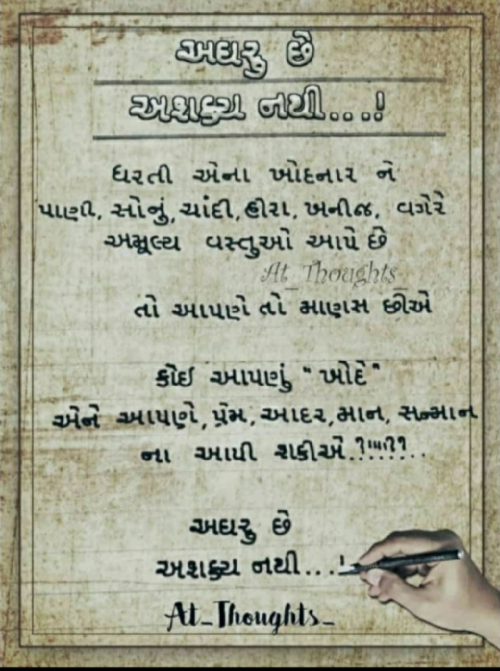 અઘરુ છે
અશક્ય નથી...!
ધરતી એના ખોદનાર ને
પાણી, સોનું, ચાંદી, હીરા, ખનીજ, વગેરે
અમૂલ્ય વસ્તુઓ આપે છે
At_Thoughts_
તો આપણે તો માણસ છીએ
કોઈ આપણું "ખોદે"
એને આપણે, પ્રેમ, આદર, માન, સન્માન
ના આપી શકીએ.?!!!.?.?..
અઘરુ છે
અશક્ય નથી...!
At_Thoughts_